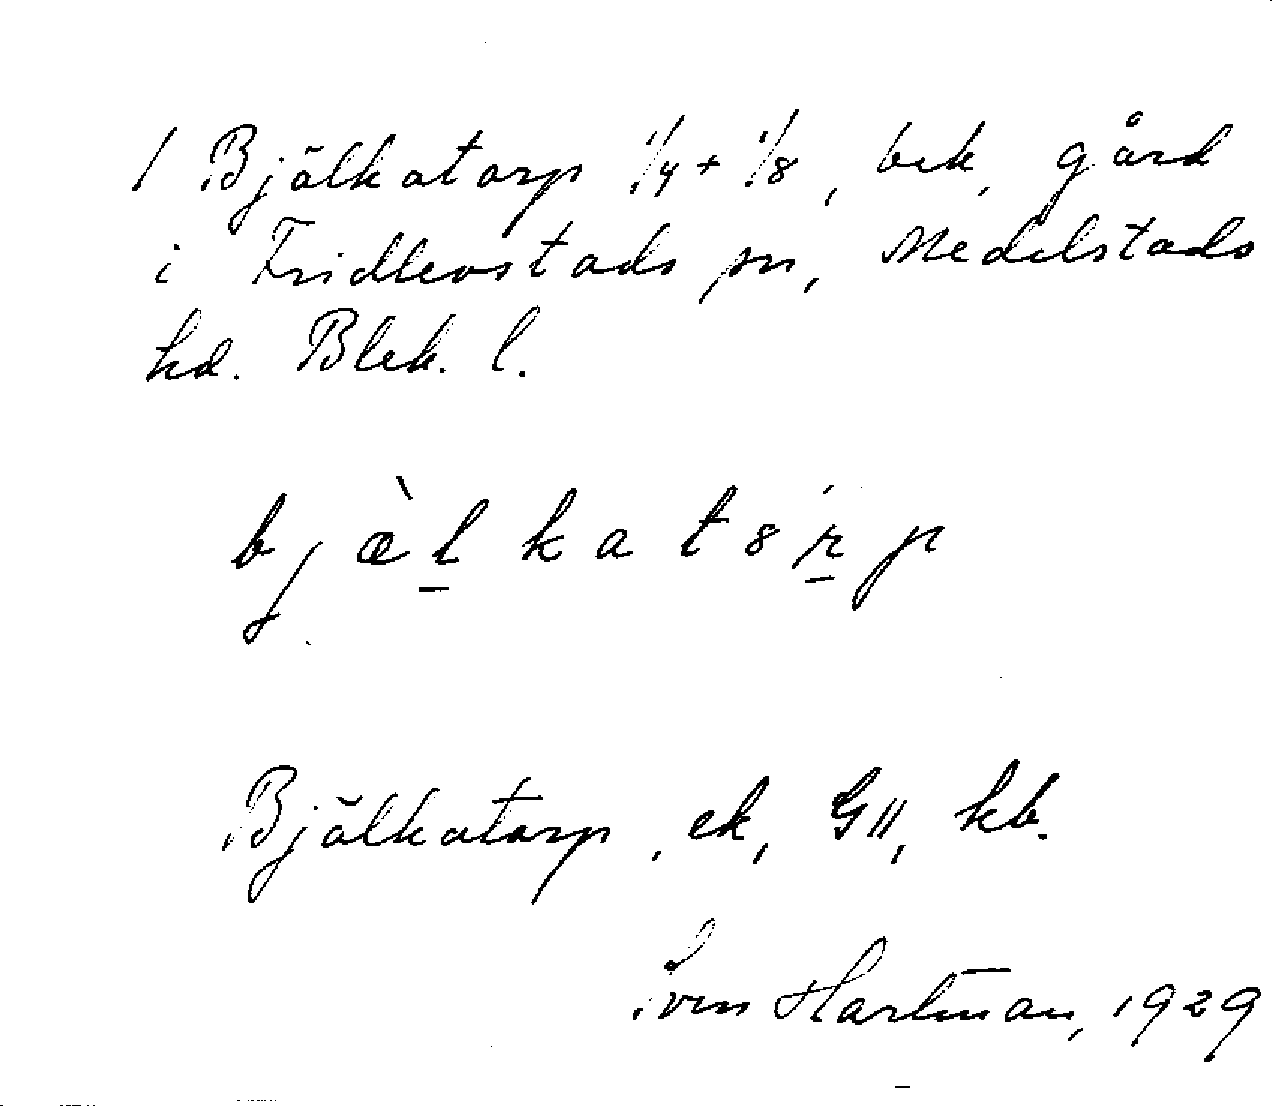 1 Bjälkatorp 1/4 + 1/8, bek. gård
i Fridlevstads sn, Medelstads
hd. Blek. l.
bjæ̀l̲katȣ́r̲p
Bjälkatorp, ek, GII, kb.
Sven Hartman, 1929